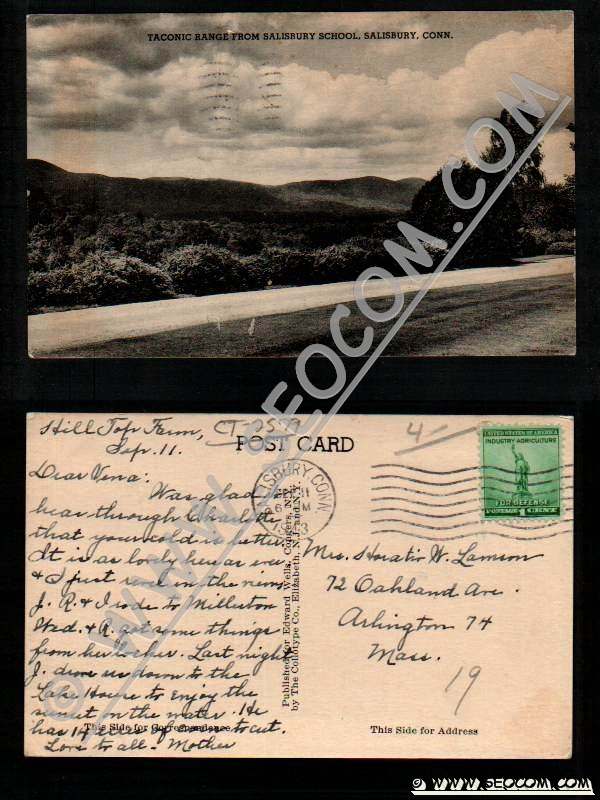 TACONIC RANGE FROM SALISBURY SCHOOL, SALISBURY, CONN.
WWW.SEOCOM.COM
Hill Top Farm,
Sep. 11.
CT-2579
POST CARD
4
UNITED STATES OF AMERICA
INDUSTRY AGRICULTURE
FOR DEFENSE
POSTAGE 1 CENT
SALISBURY, CONN.
Dear Vena:
Was glad to
hear through Charlotte
that your cold is better.
It is as lovely here as ever
& I just revel in the views.
J. R. & I rode to Millerton
Wed. & R. got some things
from her locker. Last night
J. drove us down to the
Lake House to enjoy the
sunset on the water. He
has 14 acres of to cut.
Love to all - Mother
Published for Edward Wells, Congers, N.Y.
by The Collotype Co., Elizabeth, N.J. and N.Y.
Mrs. Horatio W. Lamson
72 Oakland Ave.
Arlington 74
Mass.
19
This Side for Correspondence
This Side for Address
© WWW.SEOCOM.COM